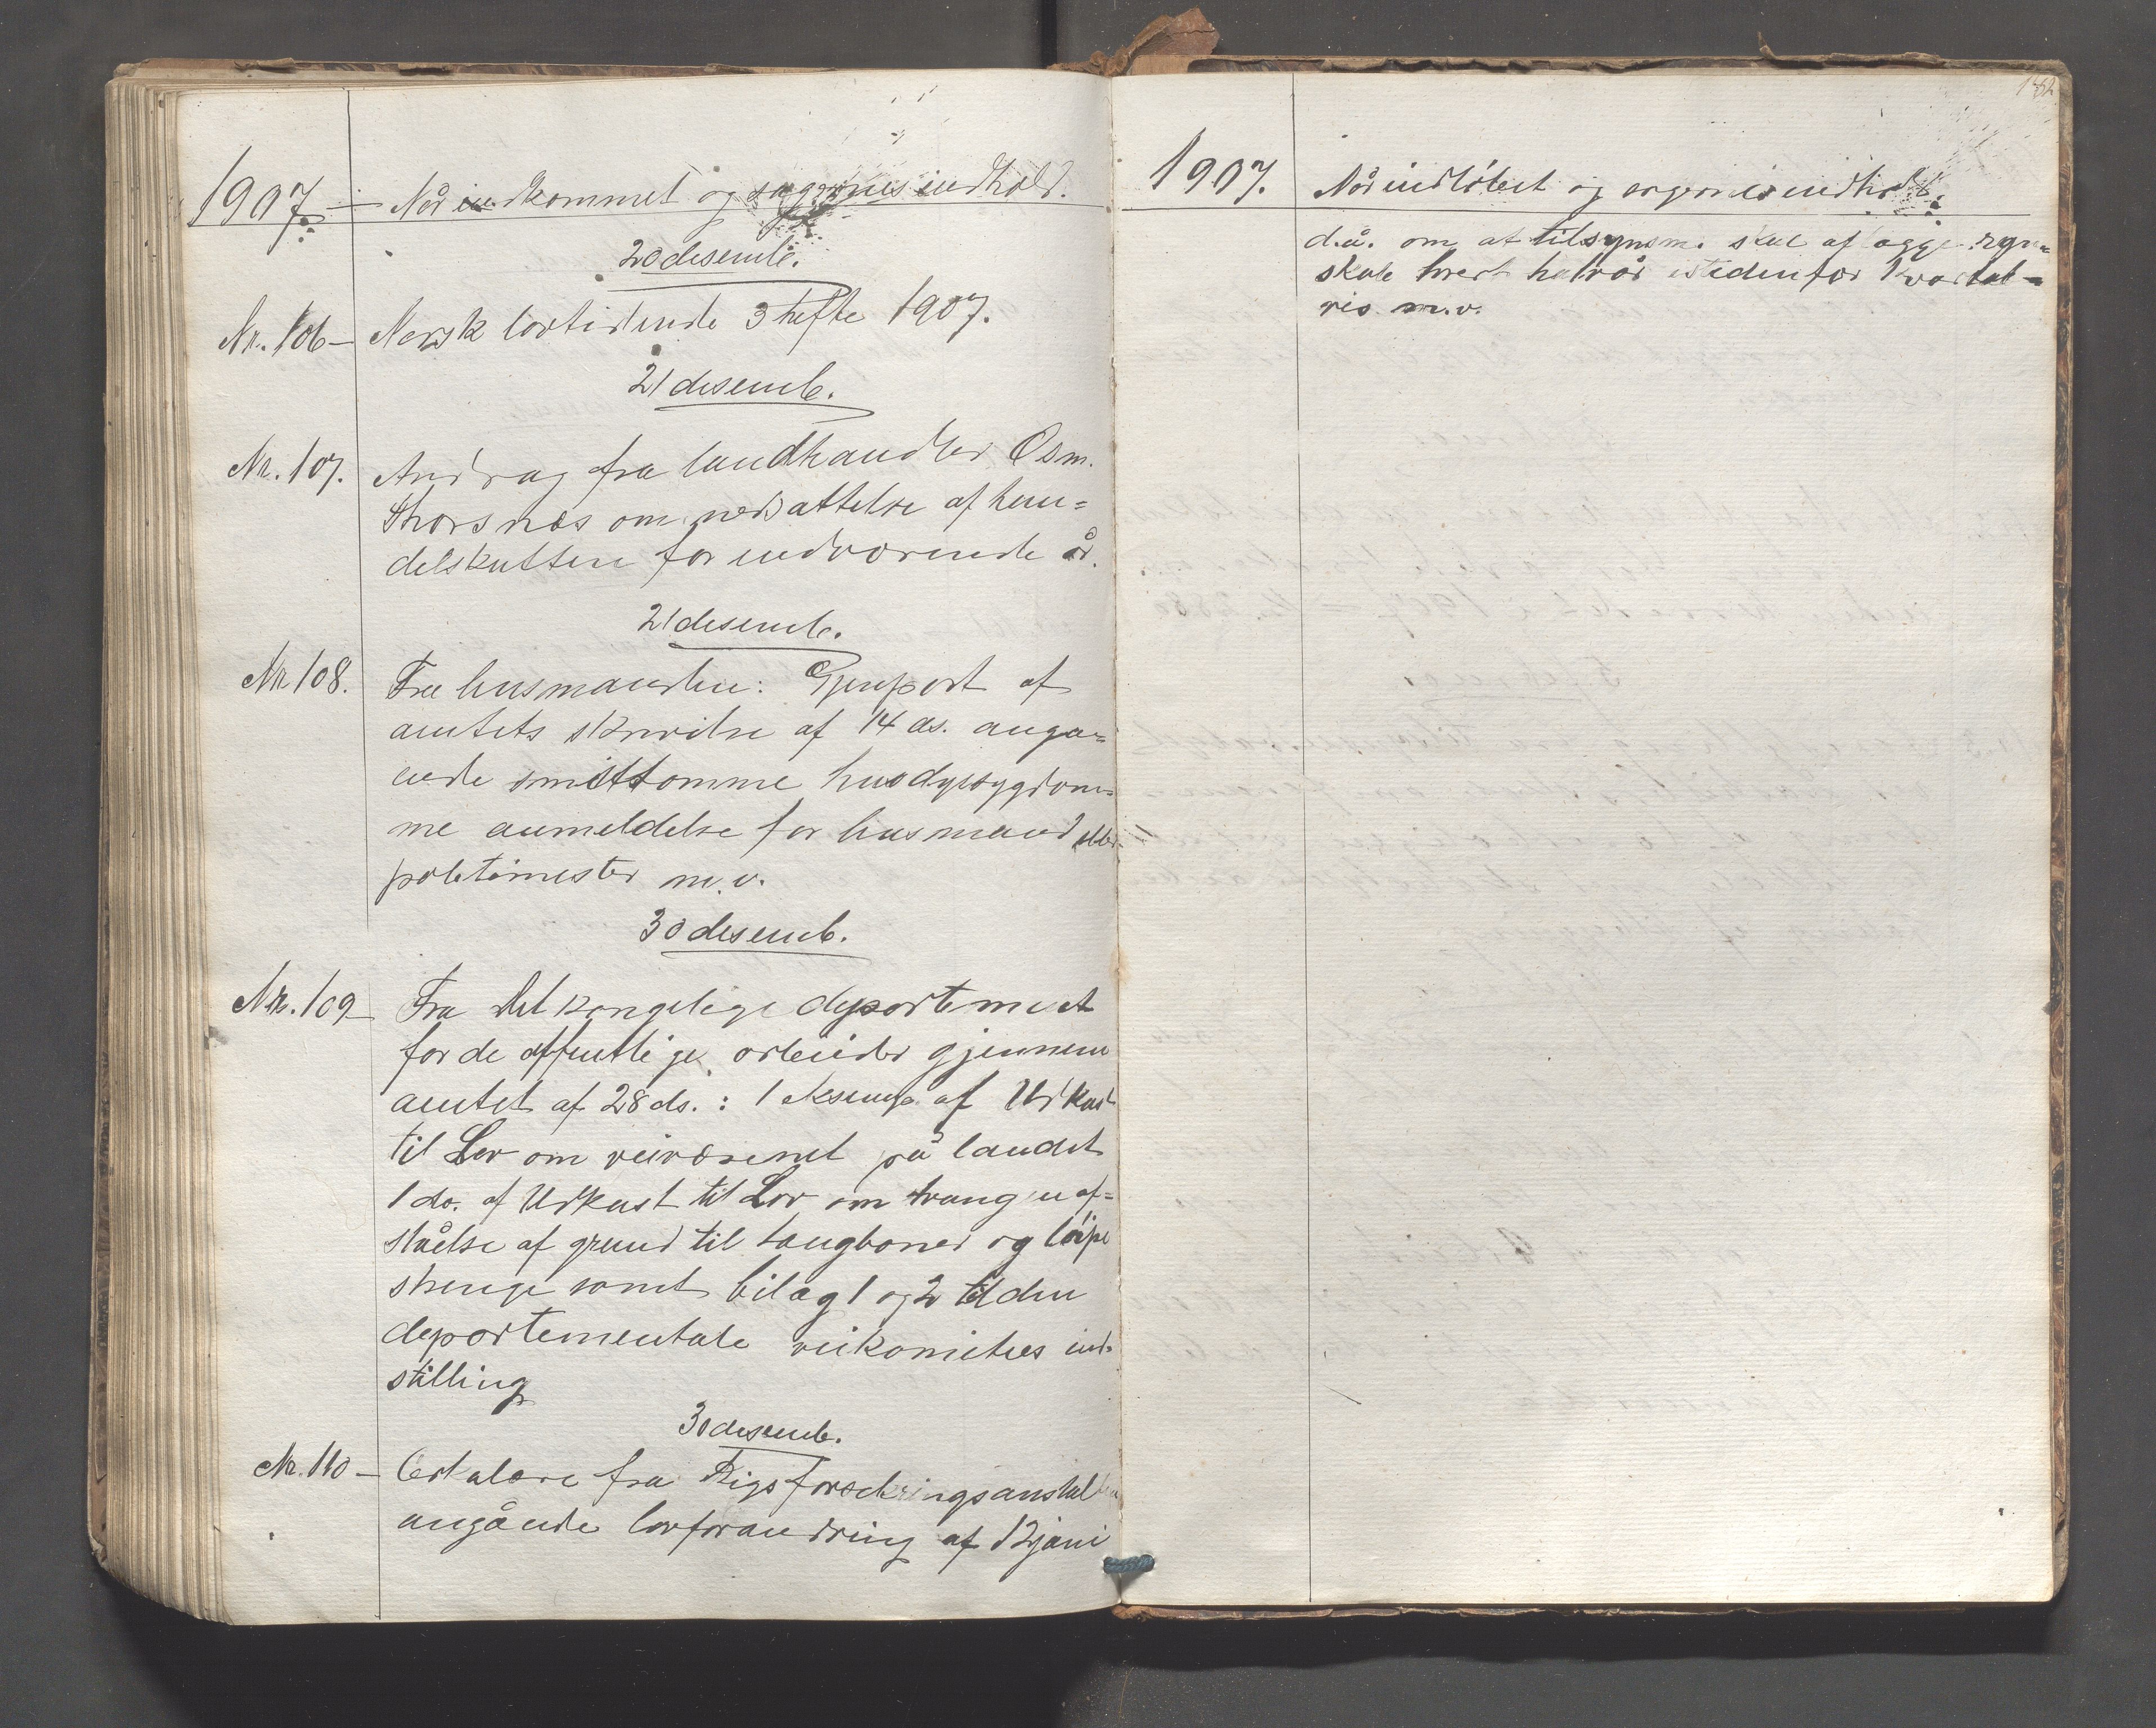 1907 — Når indkommet og sagernes indhold.
20 desemb.
Nr. 106 — Norsk lovtidende 3 hefte 1907.
21 desemb.
Nr. 107. Andrag fra landhandler Osm.
Thorsnæs om nedsættelse af han=
delskatten for indværende år.
21 desemb.
Nr. 108. Fra lensmanden: Gjenpart af
amtets skrivelse af 14 ds. angå=
ende smitsomme husdyrsygdom=
me anmeldelse for lensmand eller
politimester m.v.
30 desemb.
Nr. 109 — Fra Det kongelige departement
for de offentlige arbeider gjennem
amtet af 28 ds.: 1 eksemp. af Udkast
til Lov om veivæsenet på landet
1 do. af Udkast til Lov om tvangsaf=
ståelse af grund til taugbaner og löipe
strenge samt bilag 1 og 2 til den
departementale veikomites ind=
stilling
30 desemb.
Nr. 110 — Cirkulære fra Rigsforsikringsanstalten
angående lovforandring af 12 juni
182
1907. Når indløbet og sagernes indhold.
d.å. om at tilsynsm. skal aflægge regn=
skab hvert halvår istedenfor kvartal=
vis m.v.